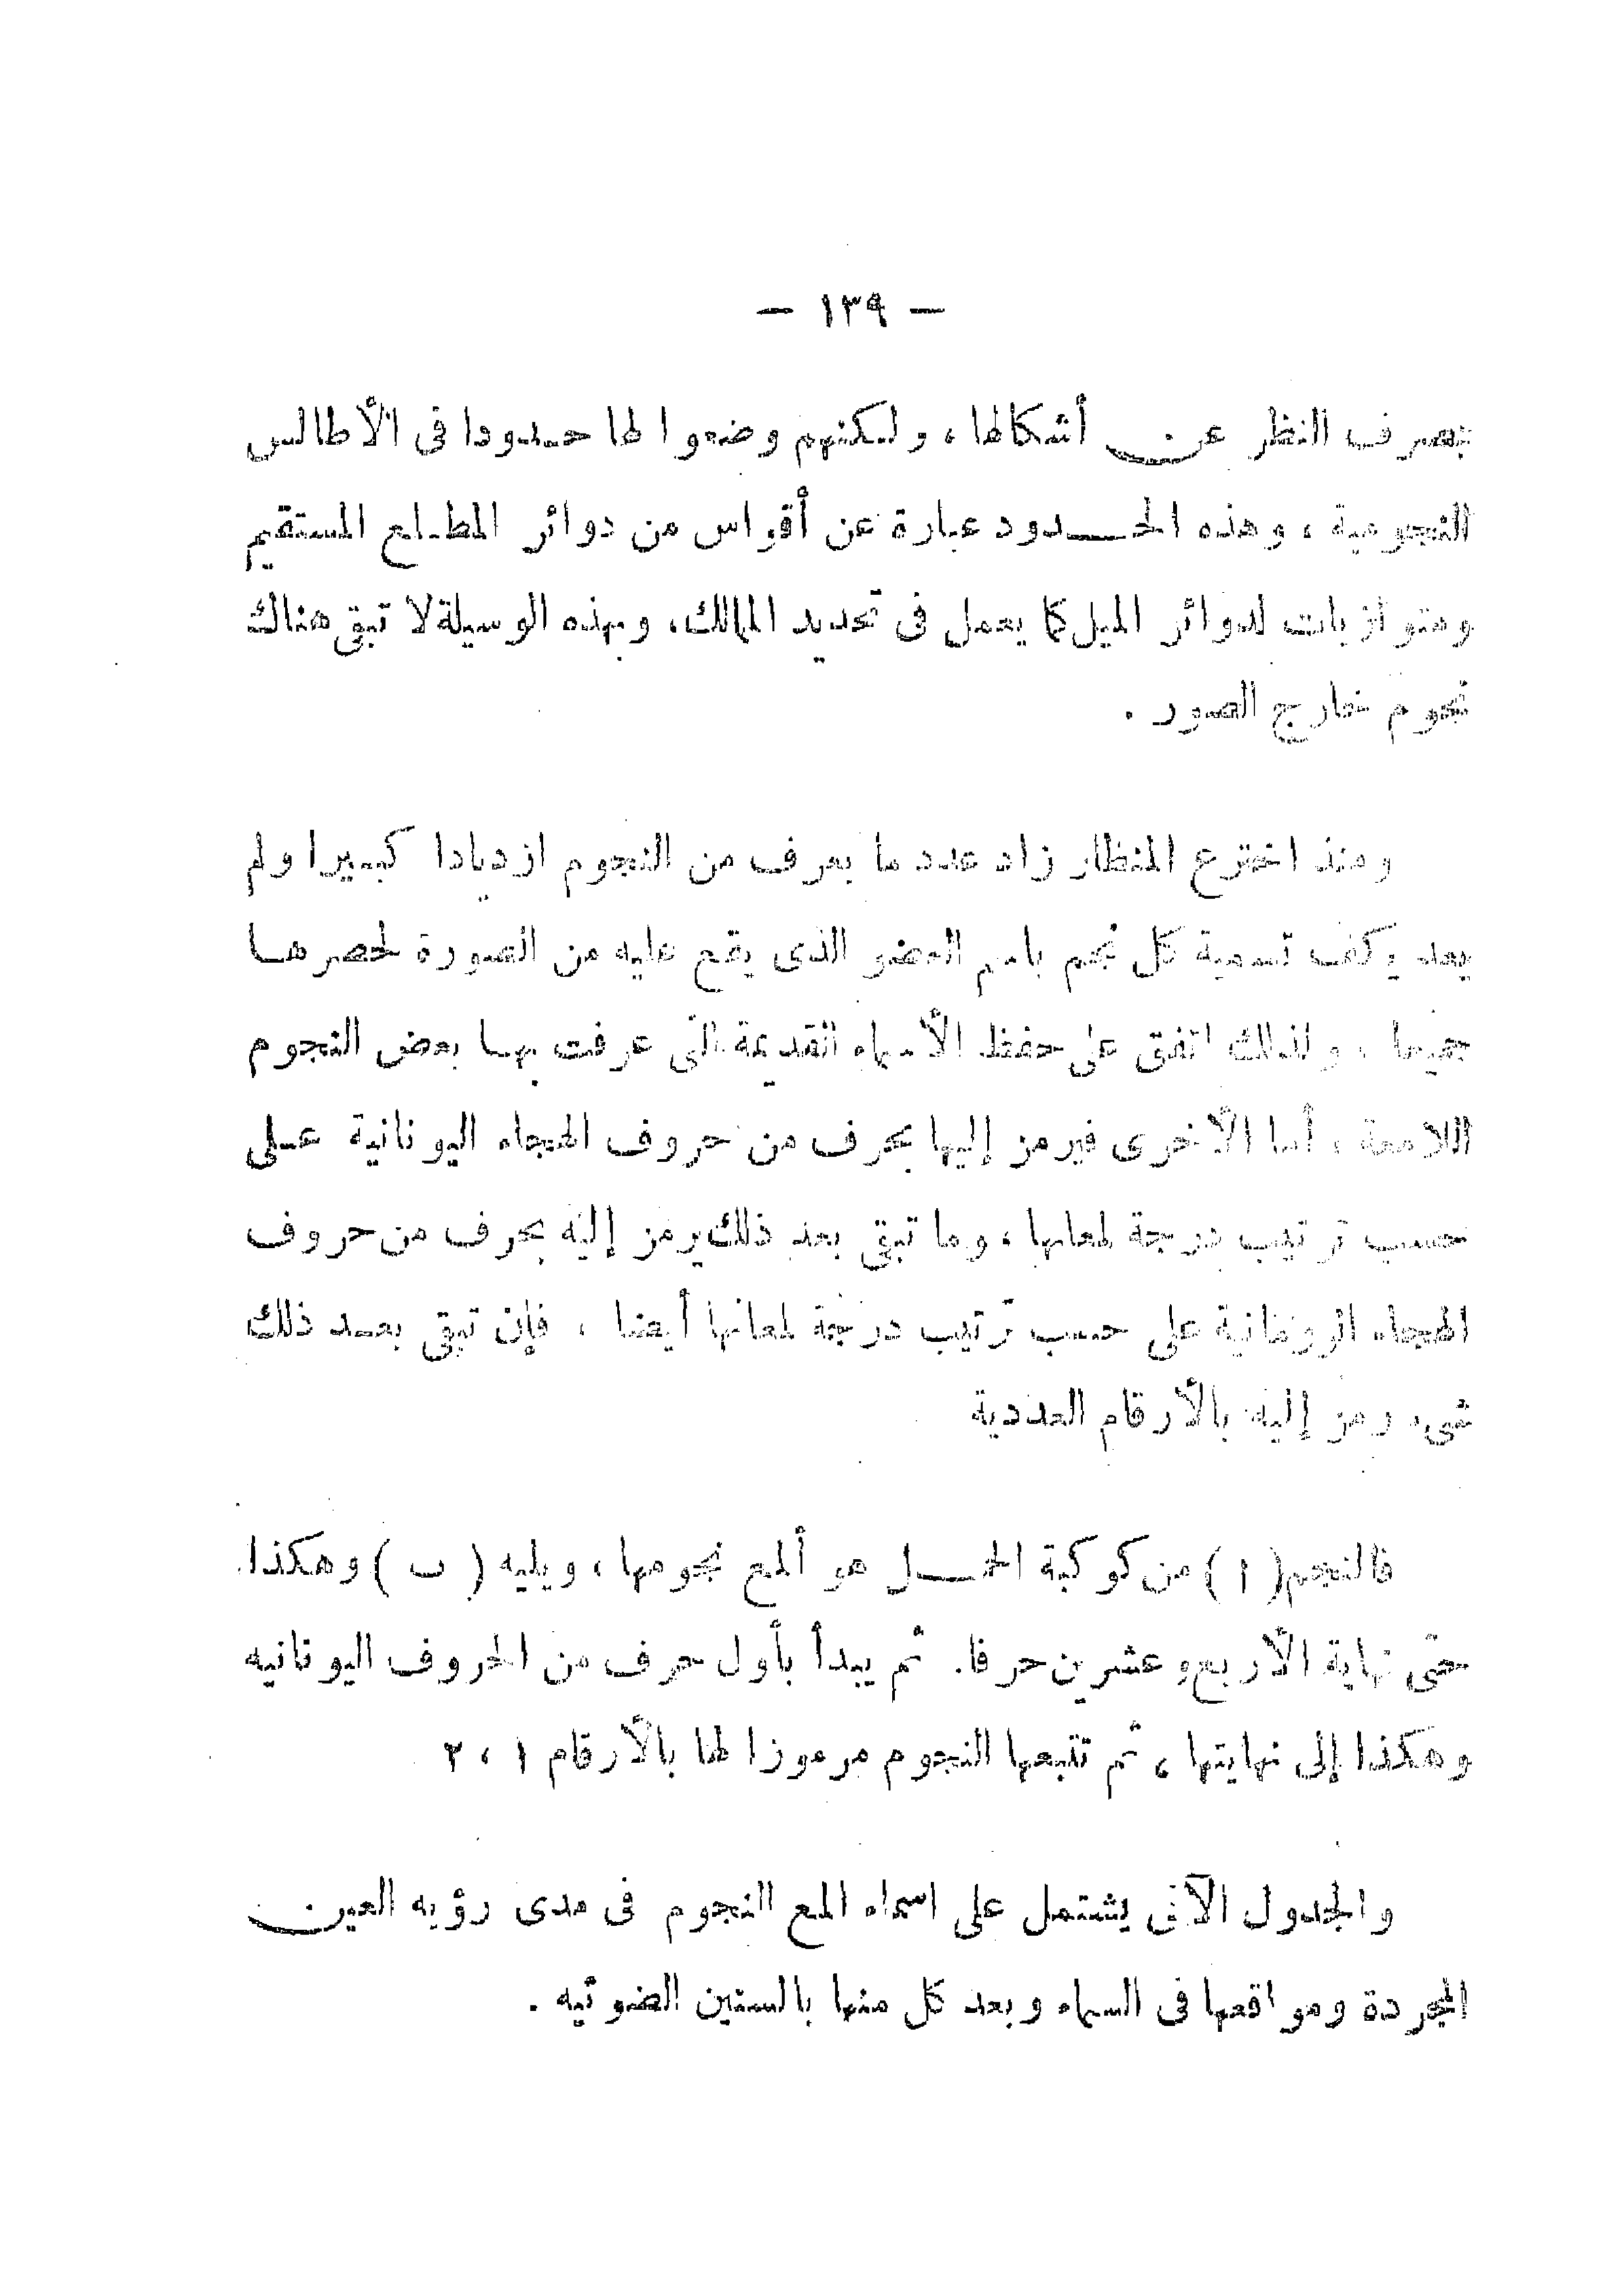 — ١٣٩ —
بصرف النظر عن أشكالها ، ولكنهم وضعوا لها حدودا فى الأطالس
النجومية ، وهذه الحدود عبارة عن أقواس من دوائر المطلع المستقيم
ومتوازيات لدوائر الميل كما يعمل فى تحديد الممالك ، وبهذه الوسيلة لا تبقى هناك
نجوم خارج الصور .
ومنذ اخترع المنظار زاد عدد ما يعرف من النجوم ازديادا كبيرا ولم
يعد يكف تسمية كل نجم باسم العضو الذى يقع عليه من الصورة لحصرها
جميعا ، ولذلك اتفق على حفظ الأسماء القديمة التى عرفت بها بعض النجوم
اللامعة ، أما الأخرى فيرمز إليها بحرف من حروف الهجاء اليونانية على
حسب ترتيب درجة لمعانها ، وما تبقى بعد ذلك يرمز إليه بحرف من حروف
الهجاء الرومانية على حسب ترتيب درجة لمعانها أيضا ، فإن تبقى بعد ذلك
شىء رمز إليه بالأرقام العددية
فالنجم ( ا ) من كوكبة الحمل هو ألمع نجومها ، ويليه ( ب ) وهكذا
حتى نهاية الأربع وعشرين حرفا . ثم يبدأ بأول حرف من الحروف اليونانيه
وهكذا إلى نهايتها ، ثم تتبعها النجوم مرموزا لها بالأرقام ١ ، ٢
والجدول الآتى يشتمل على اسماء المع النجوم فى مدى رؤيه العين
المجردة ومواقعها فى السماء وبعد كل منها بالسنين الضوئيه .